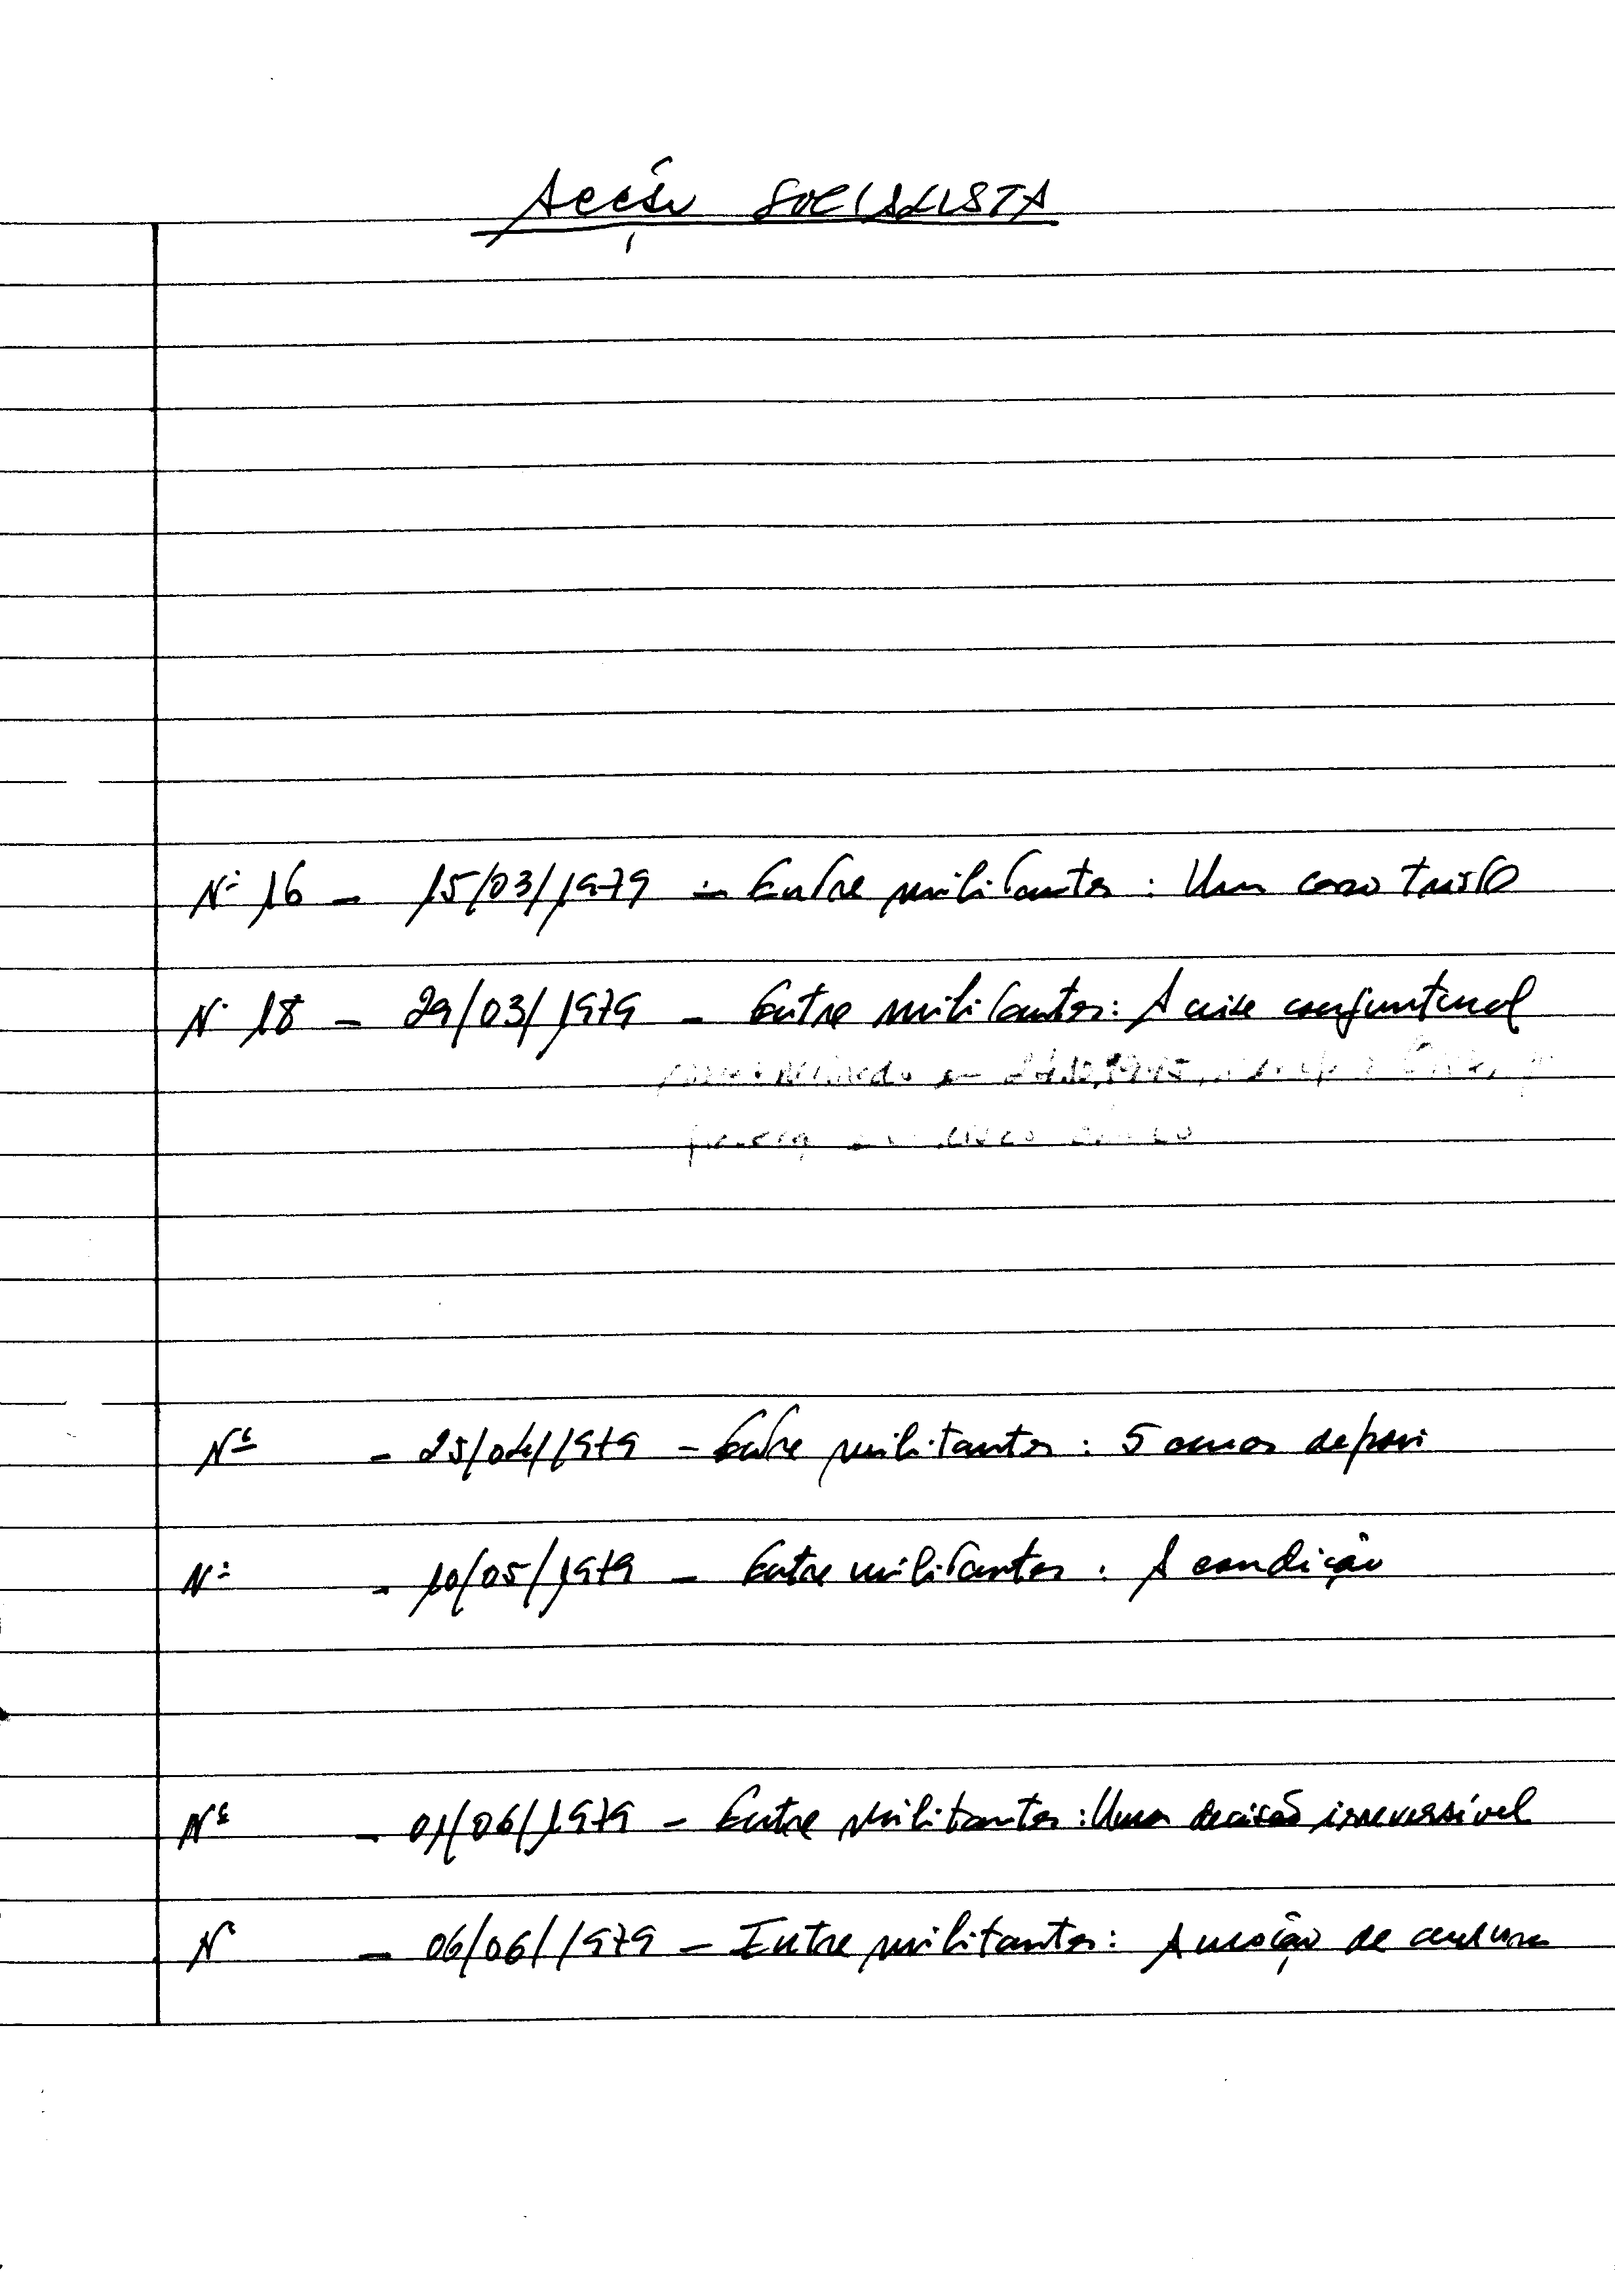 Acção SOCIALISTA
Nº 16 - 15/03/1979 - Entre militantes: Um caso triste
Nº 18 - 29/03/1979 - Entre militantes: A crise conjuntural
Nº - 25/04/1979 - Entre militantes: 5 anos depois
Nº - 10/05/1979 - Entre militantes: A condição
Nº - 01/06/1979 - Entre militantes: Uma decisão irreversível
Nº - 06/06/1979 - Entre militantes: A moção de censura